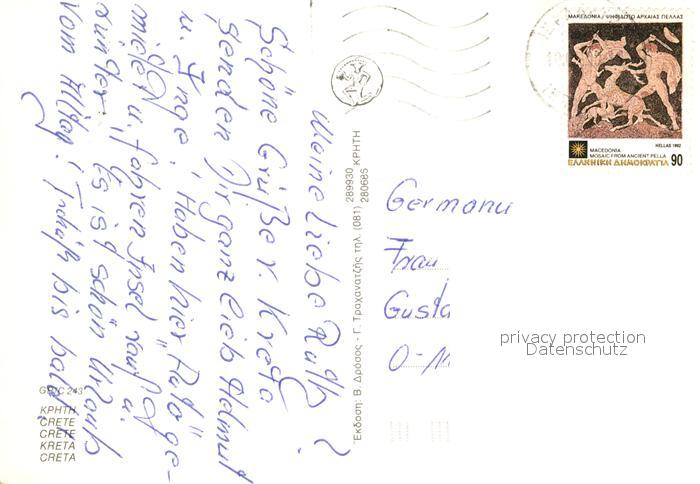 Meine liebe Ruth!
Schöne Grüße v. Kreta
senden Dir ganz lieb Helmut
u. Inge. Haben hier Auto ge-
mietet u. fahren Insel rauf u.
runter. Es ist schön Urlaub
vom Alltag! Tschüß bis bald!
ΜΑΚΕΔΟΝΙΑ / ΨΗΦΙΔΩΤΟ ΑΡΧΑΙΑΣ ΠΕΛΛΑΣ
HELLAS 1992
MACEDONIA
MOSAIC FROM ANCIENT PELLA
ΕΛΛΗΝΙΚΗ ΔΗΜΟΚΡΑΤΙΑ 90
Germany
Frau
Gusta
O-
privacy protection
Datenschutz
Έκδοση: Β. Δρόσος - Γ. Τροχανατζής τηλ. (081) 289930 ΚΡΗΤΗ
280686
243
ΚΡΗΤΗ
CRETE
CRETE
KRETA
CRETA